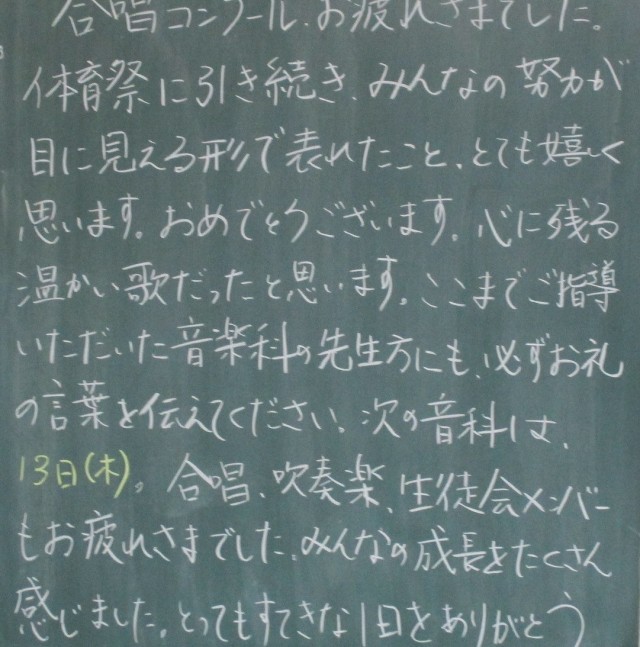 合唱コンクール、お疲れさまでした。
体育祭に引き続き、みんなの努力が
目に見える形で表れたこと、とても嬉しく
思います。おめでとうございます。心に残る
温かい歌だったと思います。ここまでご指導
いただいた音楽科の先生方にも、必ずお礼
の言葉を伝えてください。次の音科は、
13日(木)。合唱、吹奏楽、生徒会メンバー
もお疲れさまでした。みんなの成長をたくさん
感じました。とってもすてきな1日をありがとう